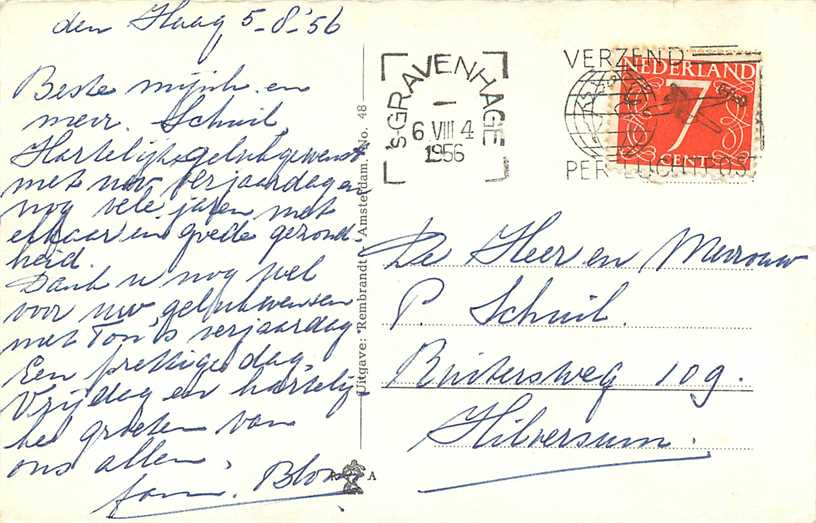 den Haag 5-8-'56
Beste mijnh. en
mevr. Schuil,
Hartelijk gelukgewenst
met uw verjaardag en
nog vele jaren met
elkaar in goede gezond-
heid.
Dank u nog wel
voor uw gelukwensen
met Ton's verjaardag
Een prettige dag,
Vrijdag en hartelij-
ke groeten van
ons allen,
fam. Blom
Uitgave: Rembrandt, Amsterdam. No. 48
R A
'S-GRAVENHAGE
6 VIII 4
1956
VERZEND
PER LUCHTPOST
NEDERLAND
7
CENT
De Heer en Mevrouw
P. Schuil.
Ruitersweg 109.
Hilversum.